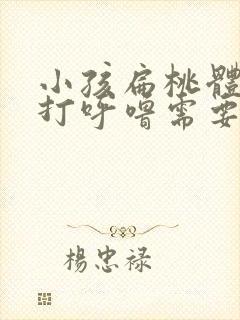 小孩扁桃體
打呼嚕需要
楊忠禄